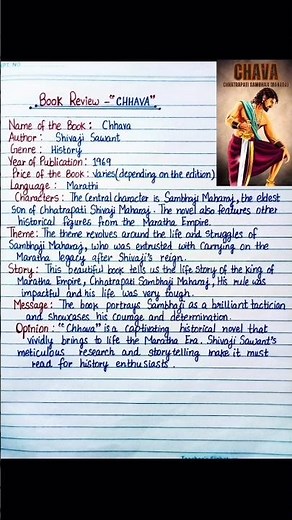 CHAVA
CHHATRAPATI SAMBHAJI MAHARAJ
Book Review - "CHHAVA"
Name of the Book : Chhava
Author : Shivaji Sawant
Genre : History
Year of Publication : 1969
Price of the Book : Varies (depending on the edition)
Language : Marathi
Characters : The Central character is Sambhaji Maharaj, the eldest
son of Chhatrapati Shivaji Maharaj. The novel also features other
historical figures from the Maratha Empire.
Theme : The theme revolves around the life and struggles of
Sambhaji Maharaj, who was entrusted with Carrying on the
Maratha legacy after Shivaji's reign.
Story : This beautiful book tells us the life story of the king of
Maratha Empire, Chhatrapati Sambhaji Maharaj. His rule was
impactful and his life was very tough.
Message : The book portrays Sambhaji as a brilliant tactician
and showcases his courage and determination.
Opinion : "Chhava" is a captivating historical novel that
vividly brings to life the Maratha Era. Shivaji Sawant's
meticulous research and storytelling make it must
read for history enthusiasts.